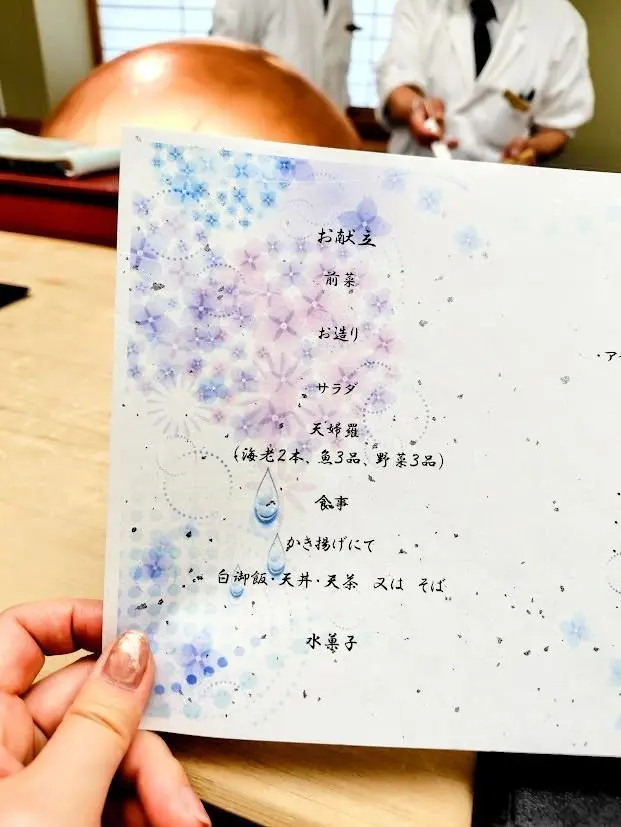 お献立
前菜
お造り
サラダ
天婦羅
（海老2本、魚3品、野菜3品）
食事
かき揚げにて
白御飯・天丼・天茶　又は　そば
水菓子
・ア